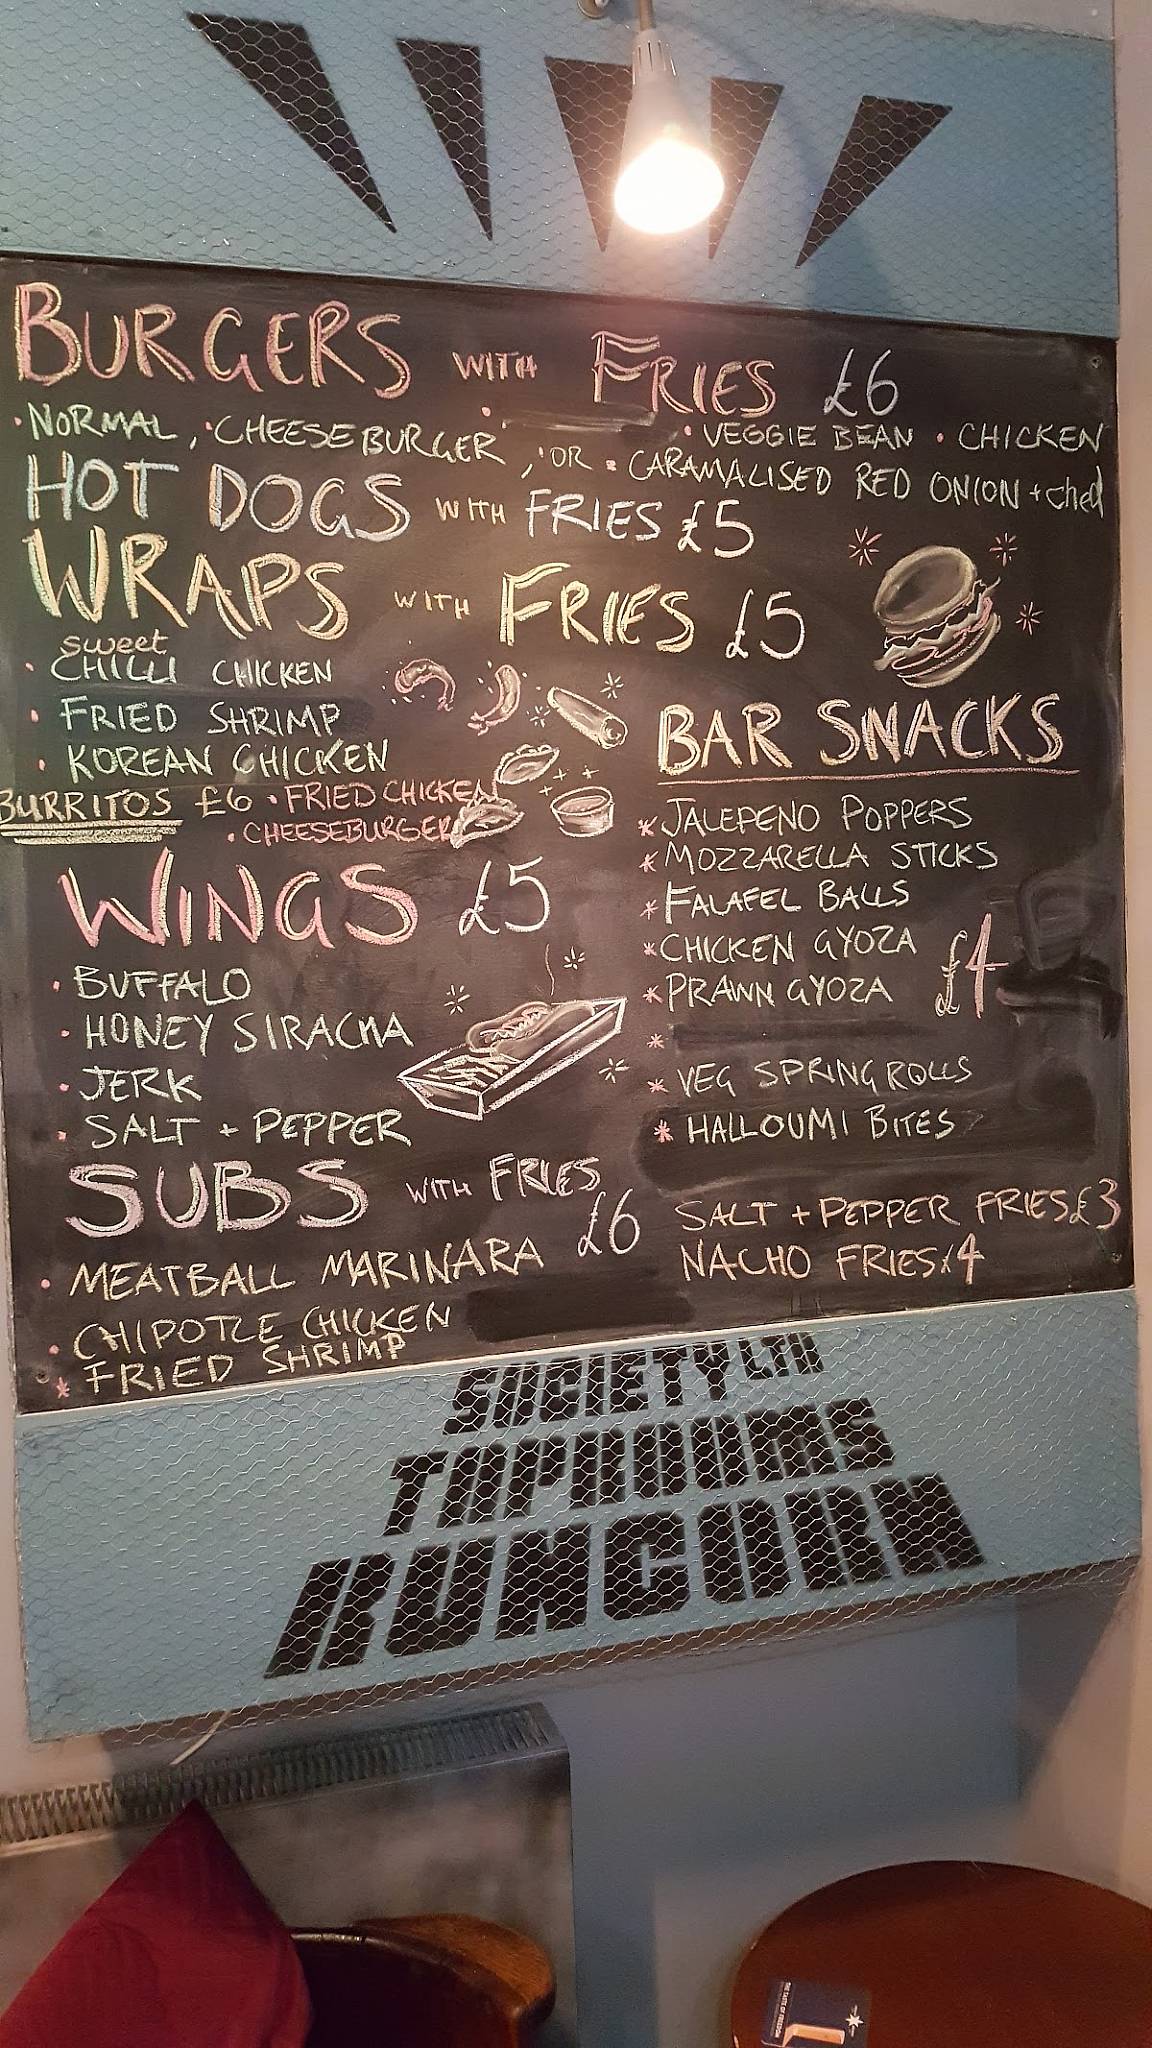 BURGERS WITH FRIES £6
· NORMAL, · CHEESEBURGER, · VEGGIE BEAN · CHICKEN
'OR · CARAMALISED RED ONION + ched
HOT DOGS WITH FRIES £5
WRAPS WITH FRIES £5
· sweet CHILLI CHICKEN
· FRIED SHRIMP
· KOREAN CHICKEN
BURRITOS £6 · FRIED CHICKEN
· CHEESEBURGER
WINGS £5
· BUFFALO
· HONEY SIRACHA
· JERK
· SALT + PEPPER
SUBS WITH FRIES £6
· MEATBALL MARINARA
· CHIPOTLE CHICKEN
* FRIED SHRIMP
BAR SNACKS
* JALEPENO POPPERS
* MOZZARELLA STICKS
* FALAFEL BALLS
* CHICKEN GYOZA £4
* PRAWN GYOZA
*
* VEG SPRING ROLLS
* HALLOUMI BITES
SALT + PEPPER FRIES £3
NACHO FRIES £4
SOCIETY LTD
TAPROOMS
RUNCORN
THE TASTE OF FREEDOM